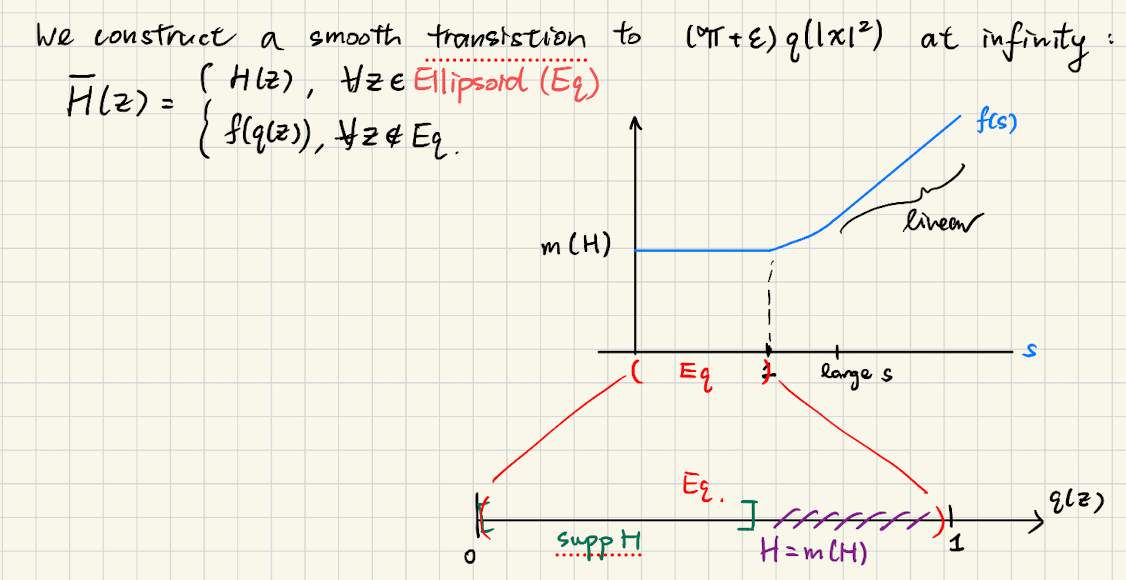 We construct a smooth transistion to (π+ε) q(|x|²) at infinity :
H̅(z) = { H(z), ∀z∈ Ellipsoid (Eq)
f(q(z)), ∀z∉ Eq.
f(s)
linear
m(H)
s
( Eq ) 1 large s
Eq.
q(z)
0 supp H H=m(H) 1